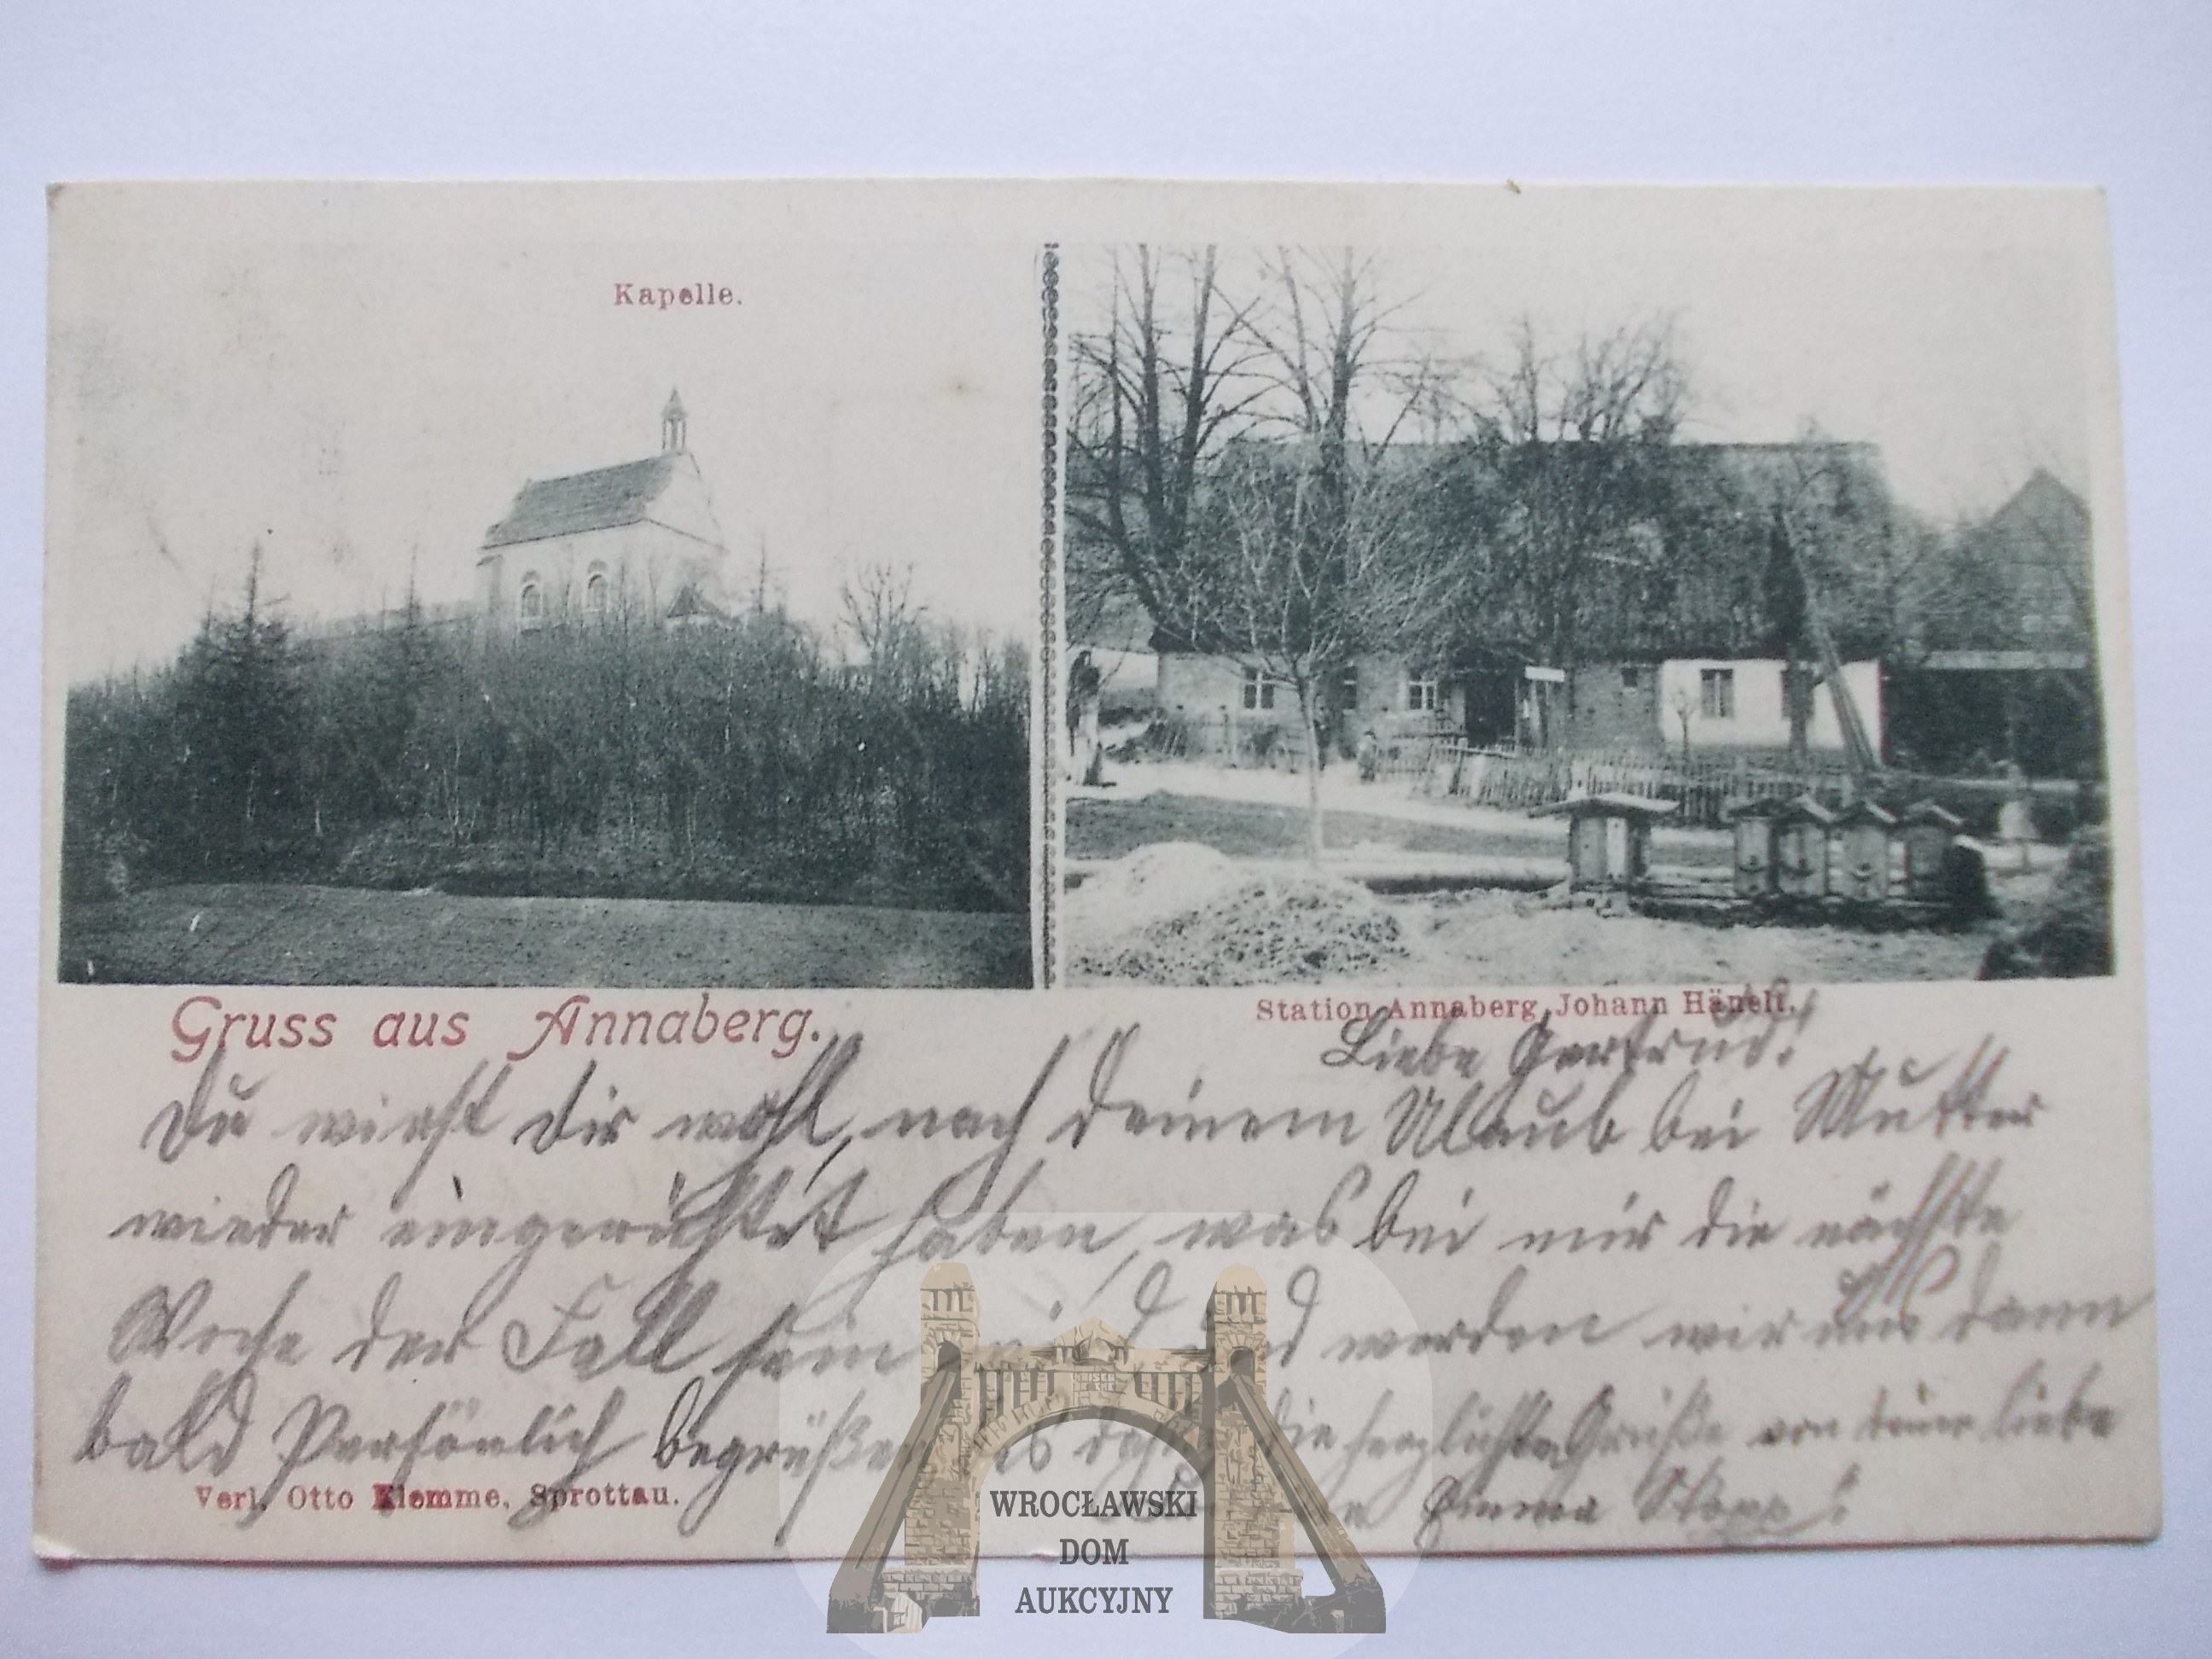 Kapelle.
Gruss aus Annaberg.
Station Annaberg Johann Hänelt.
Liebe Gertrud!
Du wirst dir wohl, nach deinem Ulaub bei Mutter
wieder eingerichtet haben, was bei mir die nächste
Woche der Fall sein wird und werden wir uns dann
bald Persönlich begrüßen die herzlichste Grüße von deiner liebe
Emma
Verl. Otto Klemme, Sprottau.
WROCŁAWSKI
DOM
AUKCYJNY